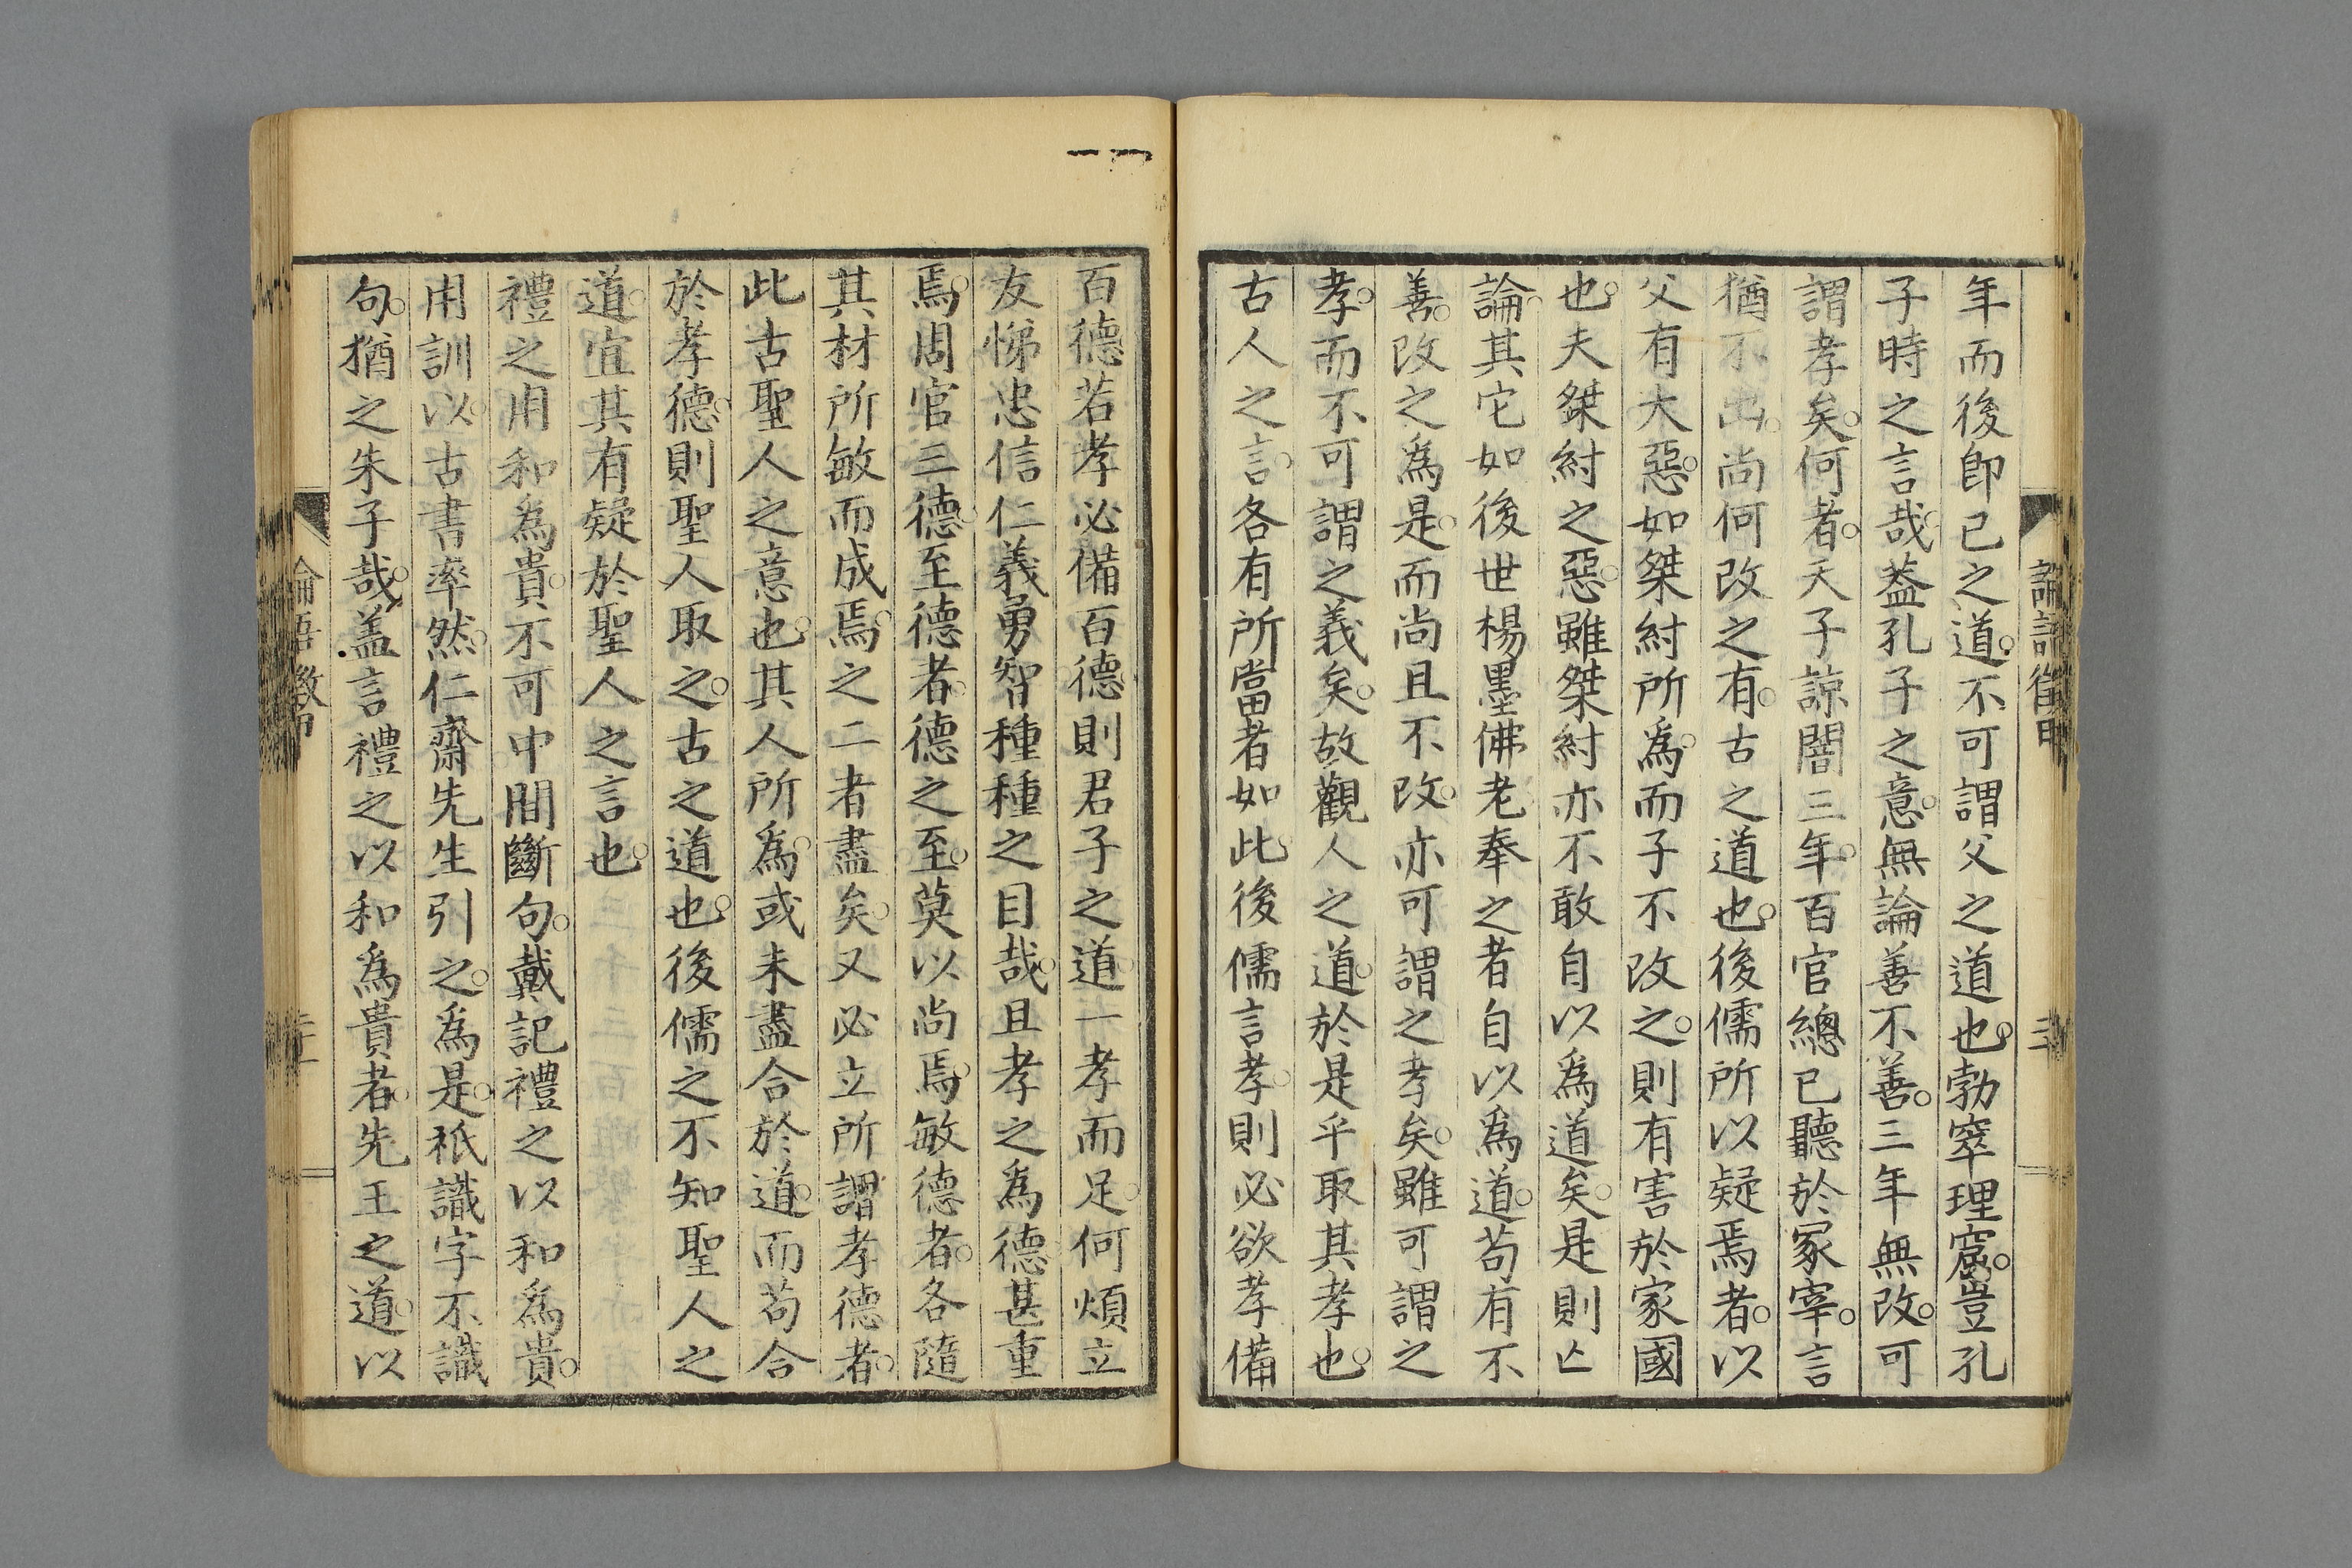 年而後卽已之道。不可謂父之道也。勃窣理窟。豈孔
子時之言哉。蓋孔子之意。無論善不善。三年無改。可
謂孝矣。何者。天子諒闇三年。百官總已聽於冢宰。言
猶不出。尚何改之有。古之道也。後儒所以疑焉者。以
父有大惡。如桀紂所爲。而子不改之。則有害於家國
也。夫桀紂之惡。雖桀紂亦不敢自以爲道矣。是則亡
論。其它如後世楊墨佛老奉之者自以爲道。苟有不
善。改之爲是。而尚且不改。亦可謂之孝矣。雖可謂之
孝。而不可謂之義矣。故觀人之道。於是乎取其孝也。
古人之言。各有所當者如此。後儒言孝。則必欲孝備
百德。若孝必備百德。則君子之道。一孝而足。何煩立
友悌忠信仁義勇智種種之目哉。且孝之爲德甚重
焉。周官三德。至德者。德之至。莫以尚焉。敏德者。各隨
其材所敏而成焉。之二者盡矣。又必立所謂孝德者。
此古聖人之意也。其人所爲。或未盡合於道。而苟合
於孝德。則聖人取之。古之道也。後儒之不知聖人之
道。宜其有疑於聖人之言也。
禮之用和爲貴。不可中間斷句。戴記禮之以和爲貴。
用訓以。古書率然。仁齋先生引之。爲是。祇識字不識
句。猶之朱子哉。蓋言禮之以和爲貴者。先王之道。以